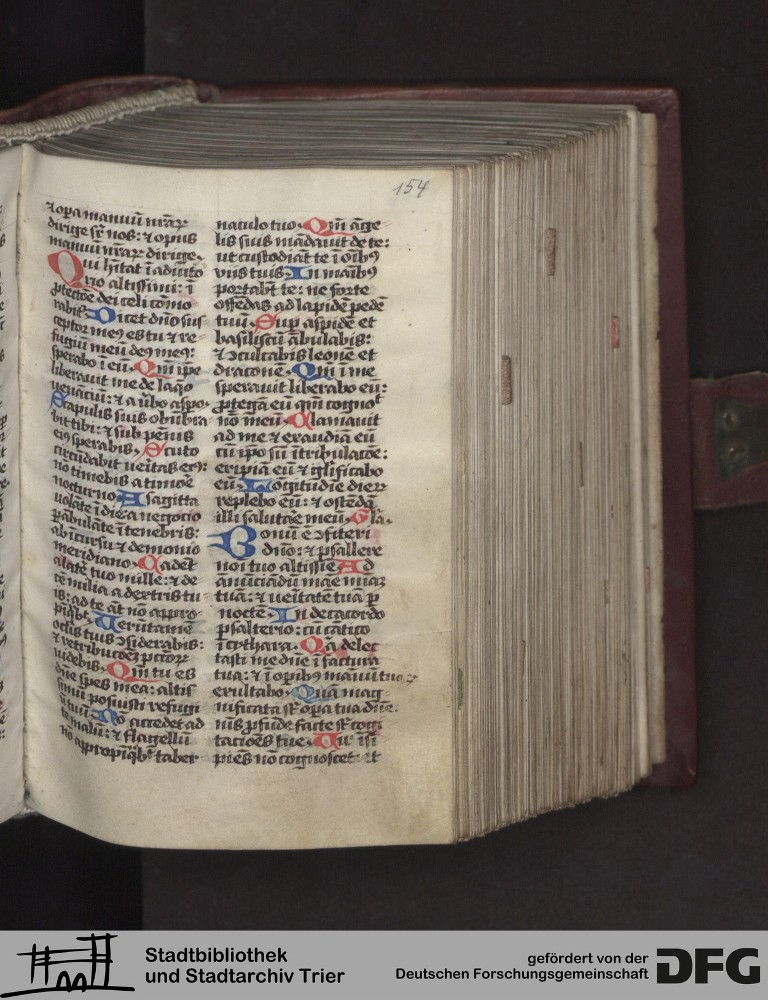 154
⁊ opa manuũ nr̃aꝝ
dirige sr̃ nos: ⁊ opus
manuũ nr̃aꝝ dirige.
Qui hĩtat ĩ adiuto
rio altissimi: ĩ
ꝓtectõe dei celi cõmo
rabit᷑. Dicet dño sus
ceptor meꝰ es tu ⁊ re
fugiũ meũ deꝰ meꝰ:
sperabo ĩ eũ. Qm̃ ip̃e
liberauit me de laq̃o
uenãciũ: ⁊ a ũbo aspo.
Scapulis suis obũbra
bit tibi: ⁊ sub pẽnis
eiꝰ sperabis. Scuto
circũdabit te ũitas eiꝰ:
nõ timebis a timore
nocturno. A sagitta
uolãte ĩ die a negocio
ꝑãbulãte ĩ tenebris:
ab ĩcursu ⁊ demonio
meridiano. Cadẽt
a latẽ tuo mille: ⁊ de
cẽ milia a dextris tu
is: ad te at̃ nõ appro
pĩq̃bt̃. Uerũtamẽ
oclis tuis ↄsiderabis:
⁊ retributõeʒ pctoꝝ
uidebis. Qm̃ tu es
dñe spes mea: altis
simũ posuisti refugi
ũ tuũ. Nõ accedet ad
te malũ: ⁊ flagellũ
nõ appropĩq̃bt̃ taber
naculo tuo. Qm̃ ãge
lis suis mãdauit de te:
ut custodiãt te ĩ oĩbꝰ
viis tuis. In maĩbꝰ
portabt̃ te: ne forte
offẽdas ad lapidẽ pedẽ
tuũ. Suꝑ aspidẽ et
basiliscũ ãbulabis:
⁊ ↄculcabis leonẽ et
draconẽ. Qm̃ ĩ me
sperauit liberabo eũ:
ꝓtegã eũ qm̃ cognoᵗ
nõ meũ. Clamauit
ad me ⁊ exaudiã eũ
cũ ip̃o sũ ĩ tribulatõe:
eripiã eũ ⁊ glĩficabo
eũ. Lõgitudĩe dieꝝ
replebo eũ: ⁊ ostẽdã
illi salutar̃e meũ. Gla.
Bonũ ẽ ↄfiteri
dño: ⁊ psallere
noĩ tuo altissĩe. Ad
anũciãdũ mãe m̃iaꝫ
tuã: ⁊ ueritatẽ tuã ꝑ
noctẽ. In decacordo
psalterio: cũ cãtico
ĩ cythara. Q̃a delec
tasti me dñe ĩ factura
tua: ⁊ ĩ opibꝰ manuũ tuaꝝ
exultabo. Quã mag
nificata sũt opa tua dñe:
nĩis ꝓfũde facte sũt cogi
tacõẽs tue. Uir ĩsi
piẽs nõ cognoscet: et
Stadtbibliothek
und Stadtarchiv Trier
gefördert von der
Deutschen Forschungsgemeinschaft
DFG